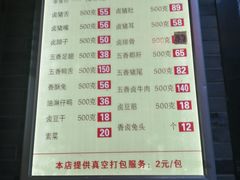 卤猪舌 500克 55 卤猪肚 500克 89
卤猪嘴 500克 56 卤猪耳 500克 58
卤脖子 500克 50 卤排骨 500克
五香足腿 500克 38 五香翅肝 500克 85
五香鸭舌 500克 150 五香猪尾 500克 82
香酥兔 500克 56 五香卤牛肉 500克 140
油淋仔鸡 500克 36 卤豆筋 500克 18
卤豆干 500克 18 香卤兔头 个 12
素菜 20
本店提供真空打包服务:2元/包